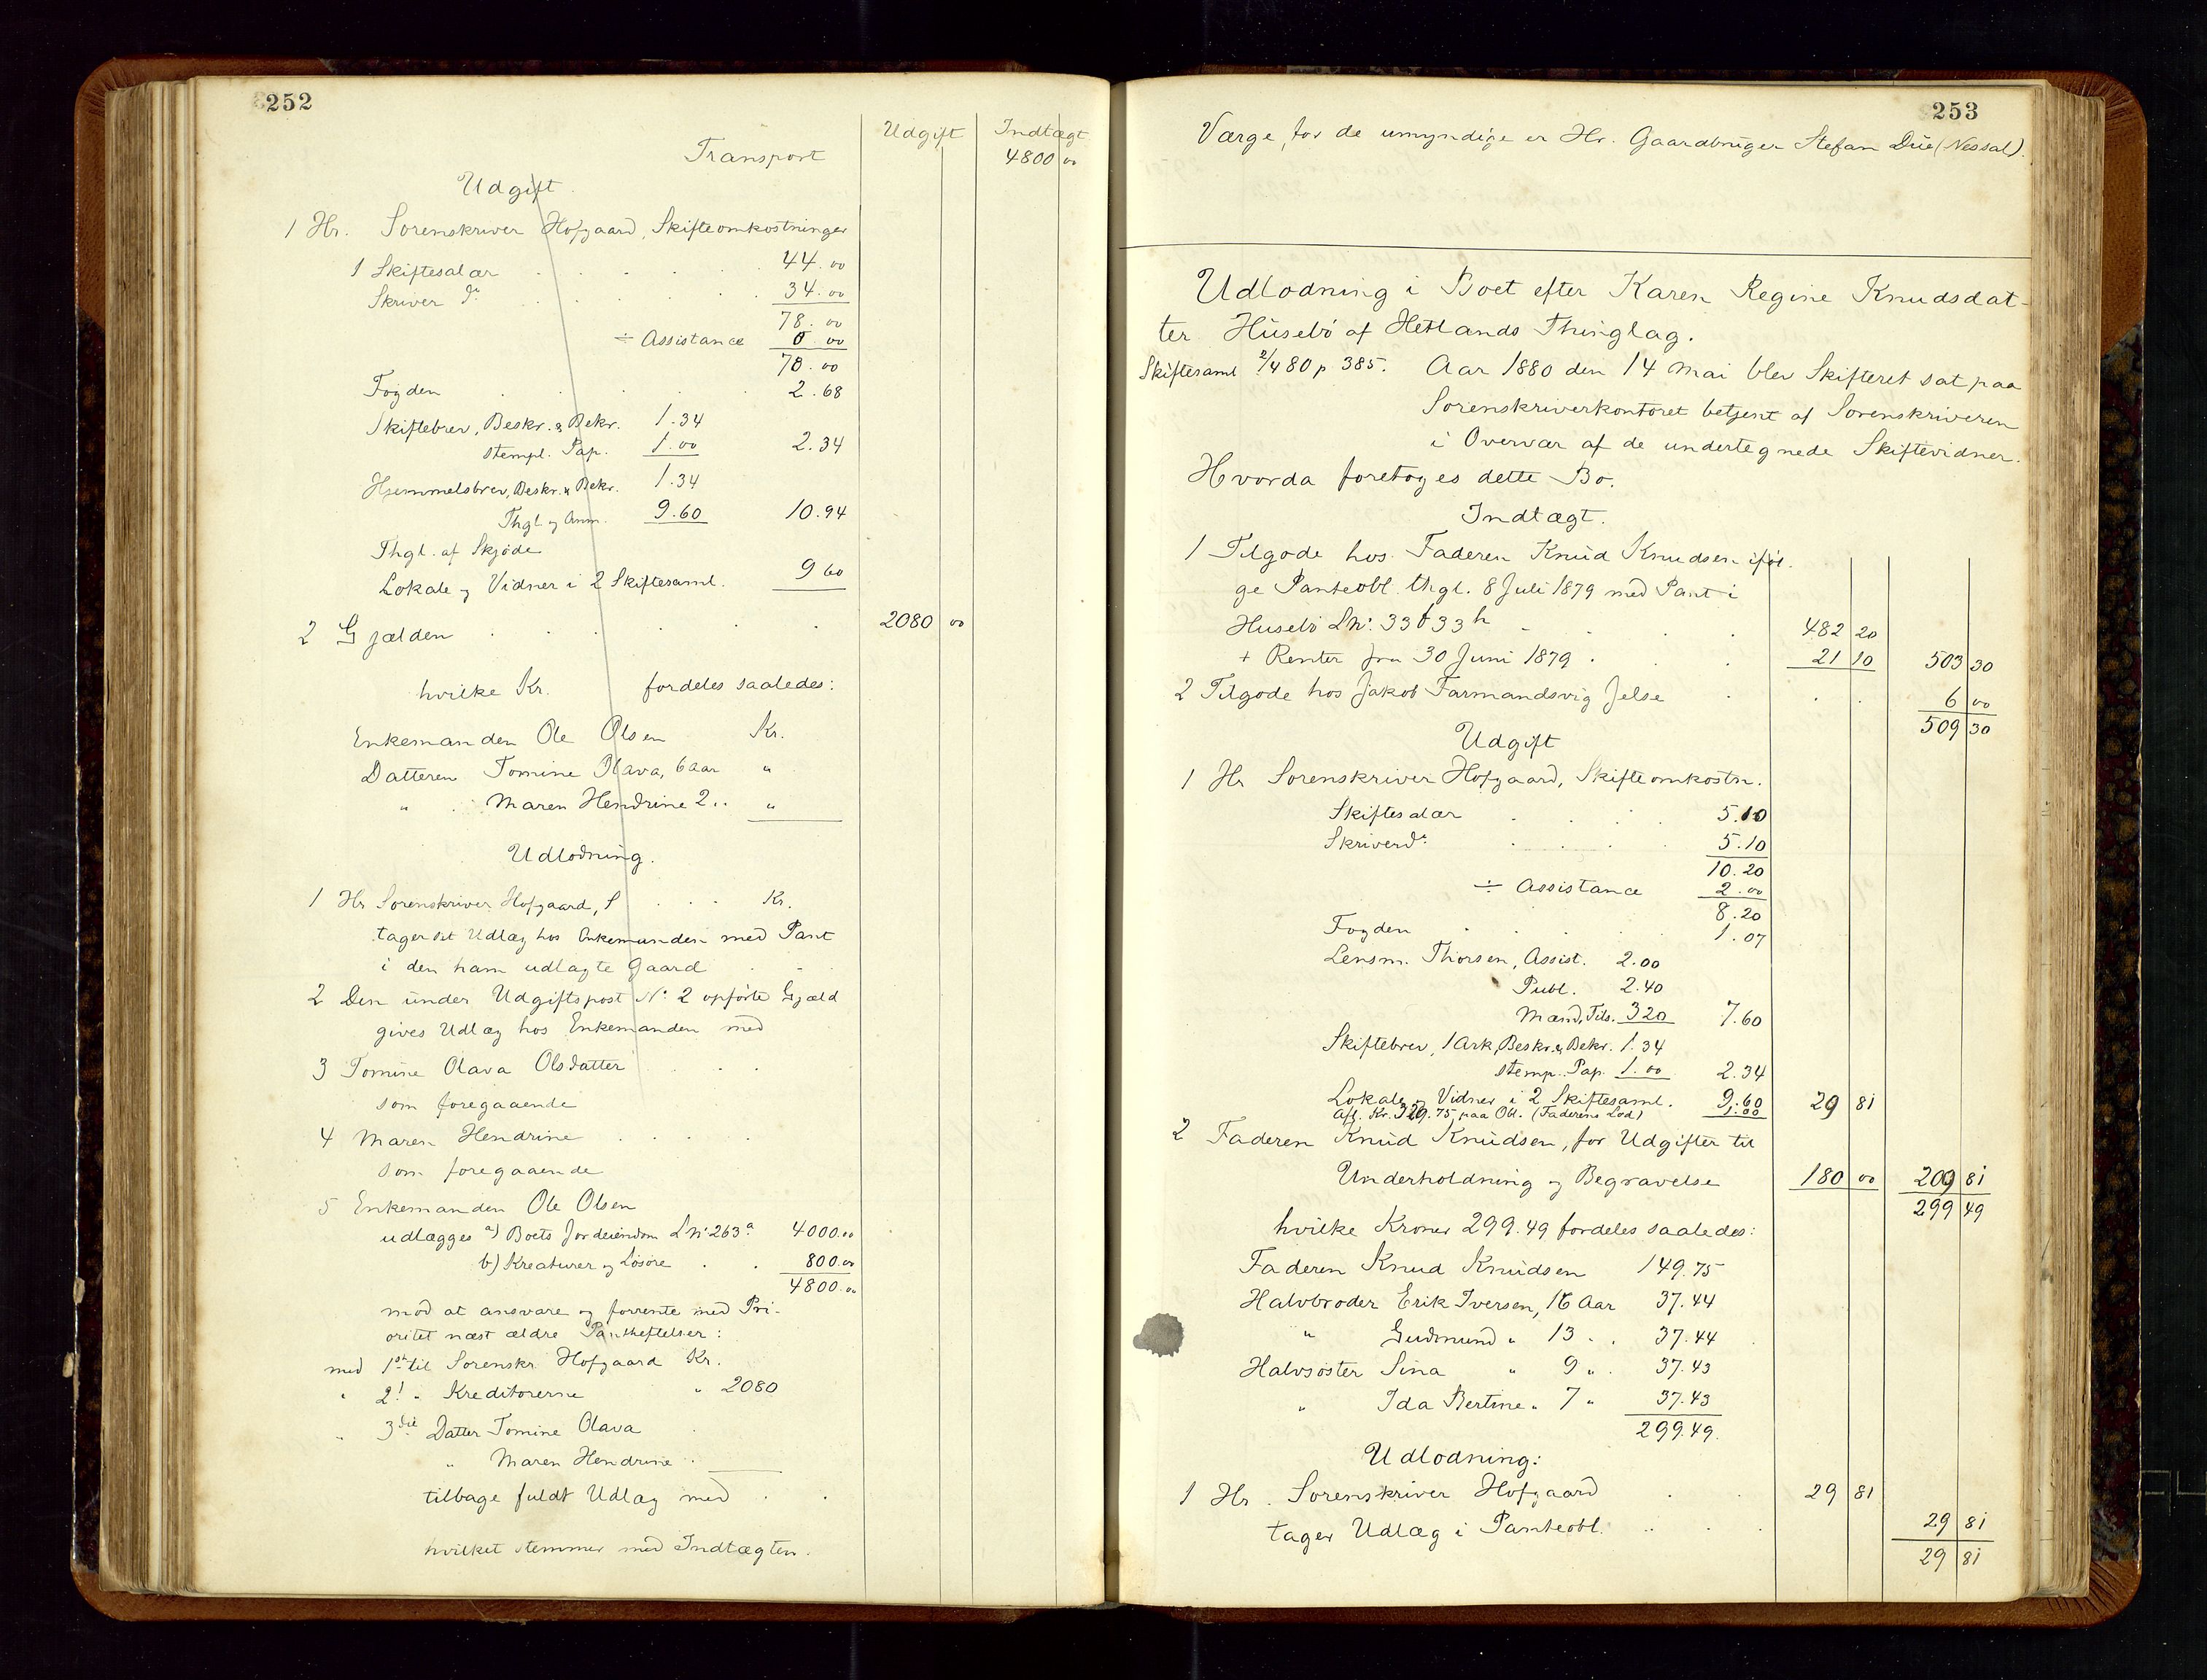 252
Udgift Indtægt
Transport 4800 00
Udgift.
1 Hr. Sorenskriver Hofgaard, Skifteomkostninger
1 Skiftesalær . . . . . 44.00
Skriver do . . . . . 34.00
78.00
÷ Assistance 8 00
70.00
Fogden . . . 2.68
Skiftebrev, Beskr. & Bekr. 1.34
stempl. Pap. 1.00 2.34
Hjemmelsbrev, Beskr. & Bekr. 1.34
Thgl og Anm. 9.60 10.94
Thgl. af Skjöde
Lokale og Vidner i 2 Skiftesaml. 9 60
2 Gjælden . . . . 2080 00
hvilke Kr. fordeles saaledes:
Enkemanden Ole Olsen Kr.
Datteren Tomine Olava, 6 aar "
" Maren Hendrine 2 " "
Udlodning.
1 Hr Sorenskriver Hofgaard, S . . . Kr.
tager sit Udlæg hos Enkemanden med Pant
i den ham udlagte Gaard . . .
2 Den under Udgiftspost No 2 opförte Gjæld
gives Udlæg hos Enkemanden med
3 Tomine Olava Olsdatter . . .
som foregaaende
4 Maren Hendrine . . . .
som foregaaende
5 Enkemanden Ole Olsen
udlægges a) Boets Jordeiendom LNo 263a 4000.00
b) Kreaturer og Lösöre . . 800.00
4800.00
mod at ansvare og forrente med Pri-
oritet næst ældre Panthæftelser:
med 1ste til Sorenskr. Hofgaard Kr.
" 2! " Kreditorerne " 2080
" 3die Datter Tomine Olava
" Maren Hendrine .
tilbage fuldt Udlæg med . .
hvilket stemmer med Indtægten.
253
Værge for de umyndige er Hr. Gaardbruger Stefan Due (Nessal).
Udlodning i Boet efter Karen Regine Knudsdat-
ter Husebö af Hetlands Thinglag.
Skiftesaml 2/4 80 p 385. Aar 1880 den 14 Mai blev Skifteret sat paa
Sorenskriverkontoret betjent af Sorenskriveren
i Overvær af de undertegnede Skiftevidner.
Hvorda foretoges dette Bo.
Indtægt.
1 Tilgode hos Faderen Knud Knudsen iföl-
ge Panteobl. thgl. 8 Juli 1879 med Pant i
Husebö LNo. 33 b 33 h . . . 482 20
+ Renter fra 30 Juni 1879 . . . 21 10 503 30
2 Tilgode hos Jakob Farmandsvig Jelse . . . 6 00
509 30
Udgift
1 Hr Sorenskriver Hofgaard, Skifteomkostn.
Skiftesalær . . . . 5.10
Skriverdo . . . . 5.10
10.20
÷ Assistance 2.00
8.20
Fogden . . . . 1.07
Lensm. Thorsen, Assist. 2.00
Publ. 2.40
Mænd, Tils. 320 7.60
Skiftebrev, 1 Ark, Beskr. & Bekr. 1.34
stemp. Pap. 1.00 2.34
Lokale og Vidner i 2 Skiftesaml. 9.60 29 81
Afg. Kr. 329.75 paa Obl. (Faderens Lod) 1.00
2 Faderen Knud Knudsen, for Udgifter til
Underholdning og Begravelse 180 00 209 81
299 49
hvilke Kroner 299.49 fordeles saaledes:
Faderen Knud Knudsen 149.75
Halvbroder Erik Iversen, 16 Aar 37.44
" Gudmund " 13 . . 37.44
Halvsöster Sina " 9 " . 37.43
" Ida Bertine " 7 " 37.43
299.49.
Udlodning:
1 Hr. Sorenskriver Hofgaard . . 29 81
tager Udlæg i Panteobl. . . . 29 81
29 81